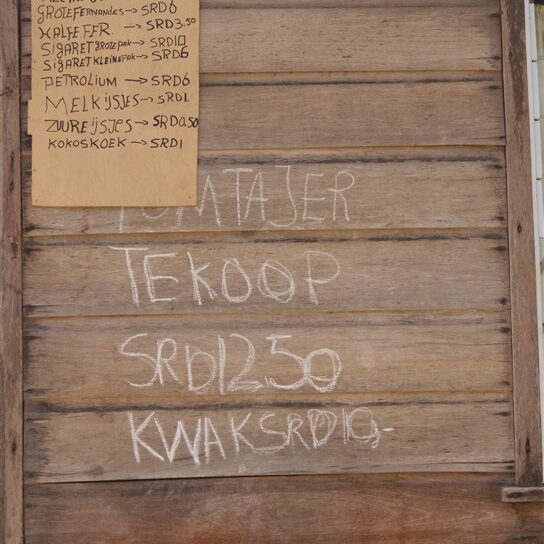 GROTE FERNANDES → SRD6
HALFE FER → SRD3.50
SIGARET GROTE PAK → SRD10
SIGARET KLEINE PAK → SRD6
PETROLIUM → SRD6
MELKIJSJES → SRD1.
ZUURE IJSJES → SRD0.50
KOKOSKOEK → SRD1
POMTAJER
TEKOOP
SRD12.50
KWAK SRD10,-